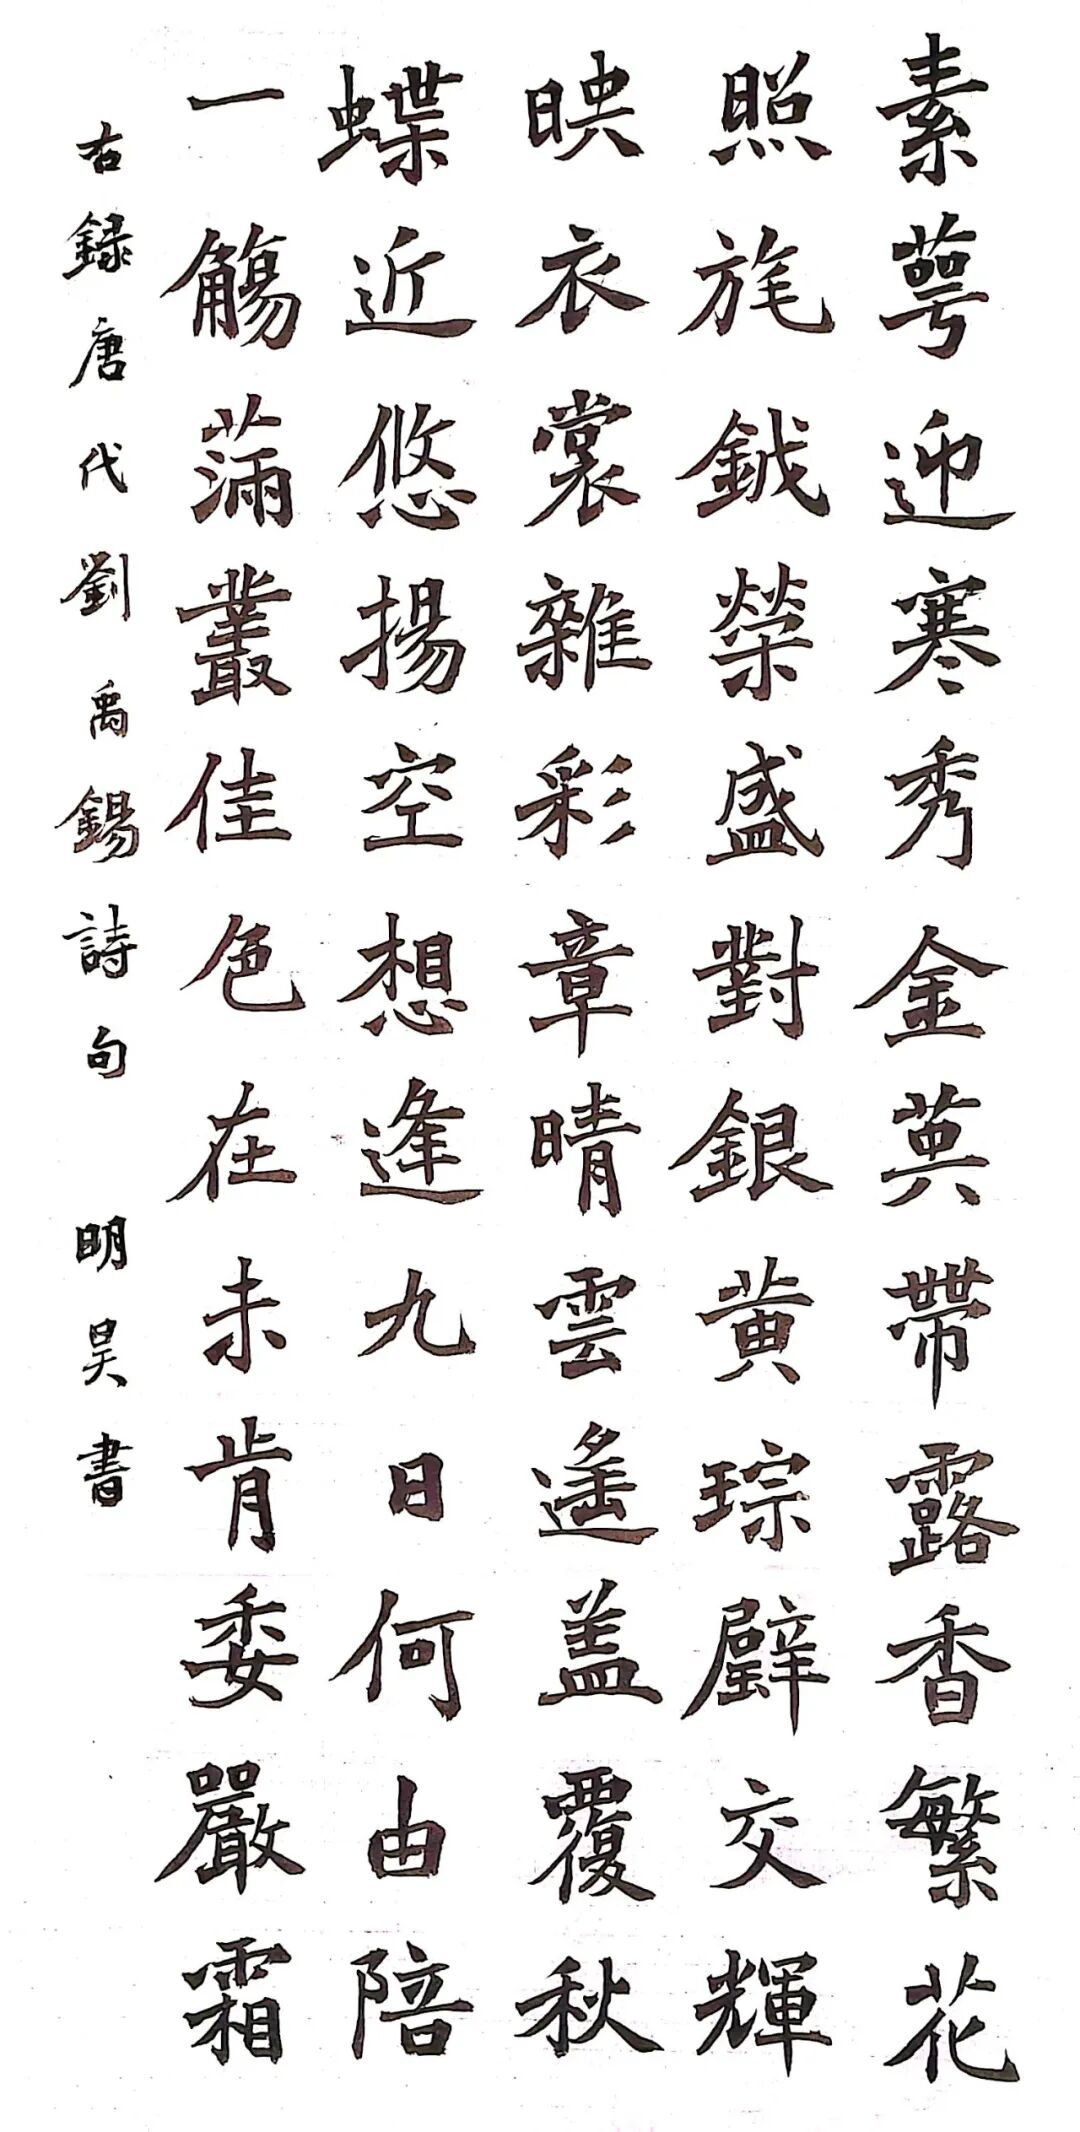 素萼迎寒秀金英帶露香繁花
照旄鉞榮盛對銀黃琮璧交輝
映衣裳雜彩章晴雲遙蓋覆秋
蝶近悠揚空想逢九日何由陪
一觴滿叢佳色在未肯委嚴霜
右録唐代劉禹錫詩句 明昊書